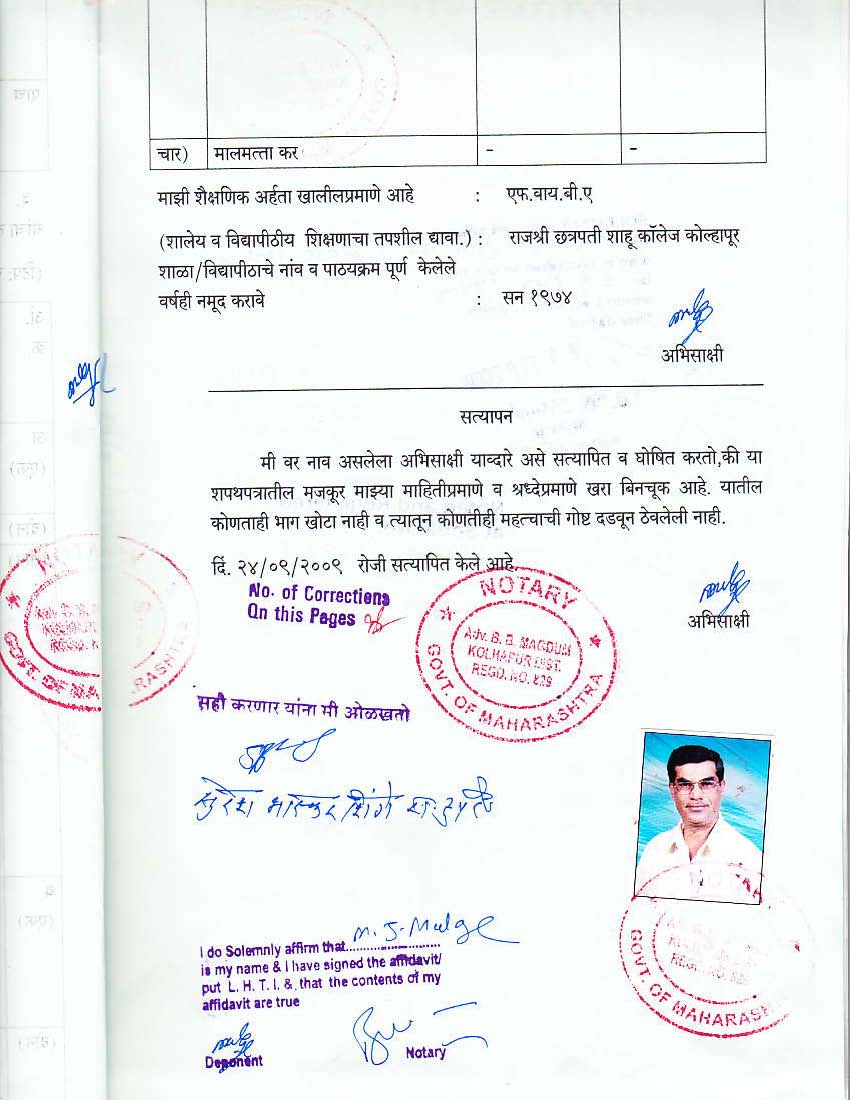 चार) मालमत्ता कर - -
माझी शैक्षणिक अर्हता खालीलप्रमाणे आहे : एफ.वाय.बी.ए
(शालेय व विद्यापीठीय शिक्षणाचा तपशील द्यावा.) : राजश्री छत्रपती शाहू कॉलेज कोल्हापूर
शाळा/विद्यापीठाचे नांव व पाठयक्रम पूर्ण केलेले
वर्षही नमूद करावे : सन १९७४
अभिसाक्षी
सत्यापन
मी वर नाव असलेला अभिसाक्षी याव्दारे असे सत्यापित व घोषित करतो,की या
शपथपत्रातील मजकूर माझ्या माहितीप्रमाणे व श्रध्देप्रमाणे खरा बिनचूक आहे. यातील
कोणताही भाग खोटा नाही व त्यातून कोणतीही महत्वाची गोष्ट दडवून ठेवलेली नाही.
दिं. २४/०९/२००९ रोजी सत्यापित केले आहे.
अभिसाक्षी
No. of Corrections
On this Pages
NOTARY
Adv. B. B. MAGDUM
KOLHAPUR DIST.
REGD. NO. 829
GOVT. OF MAHARASHTRA
सही करणार यांना मी ओळखतो
सुरेश भास्कर शिंगे
I do Solemnly affirm that.......................... M. S. Mulge
is my name & I have signed the affidavit/
put L. H. T. I. & that the contents of my
affidavit are true
Deponent Notary
GOVT. OF MAHARASHTRA